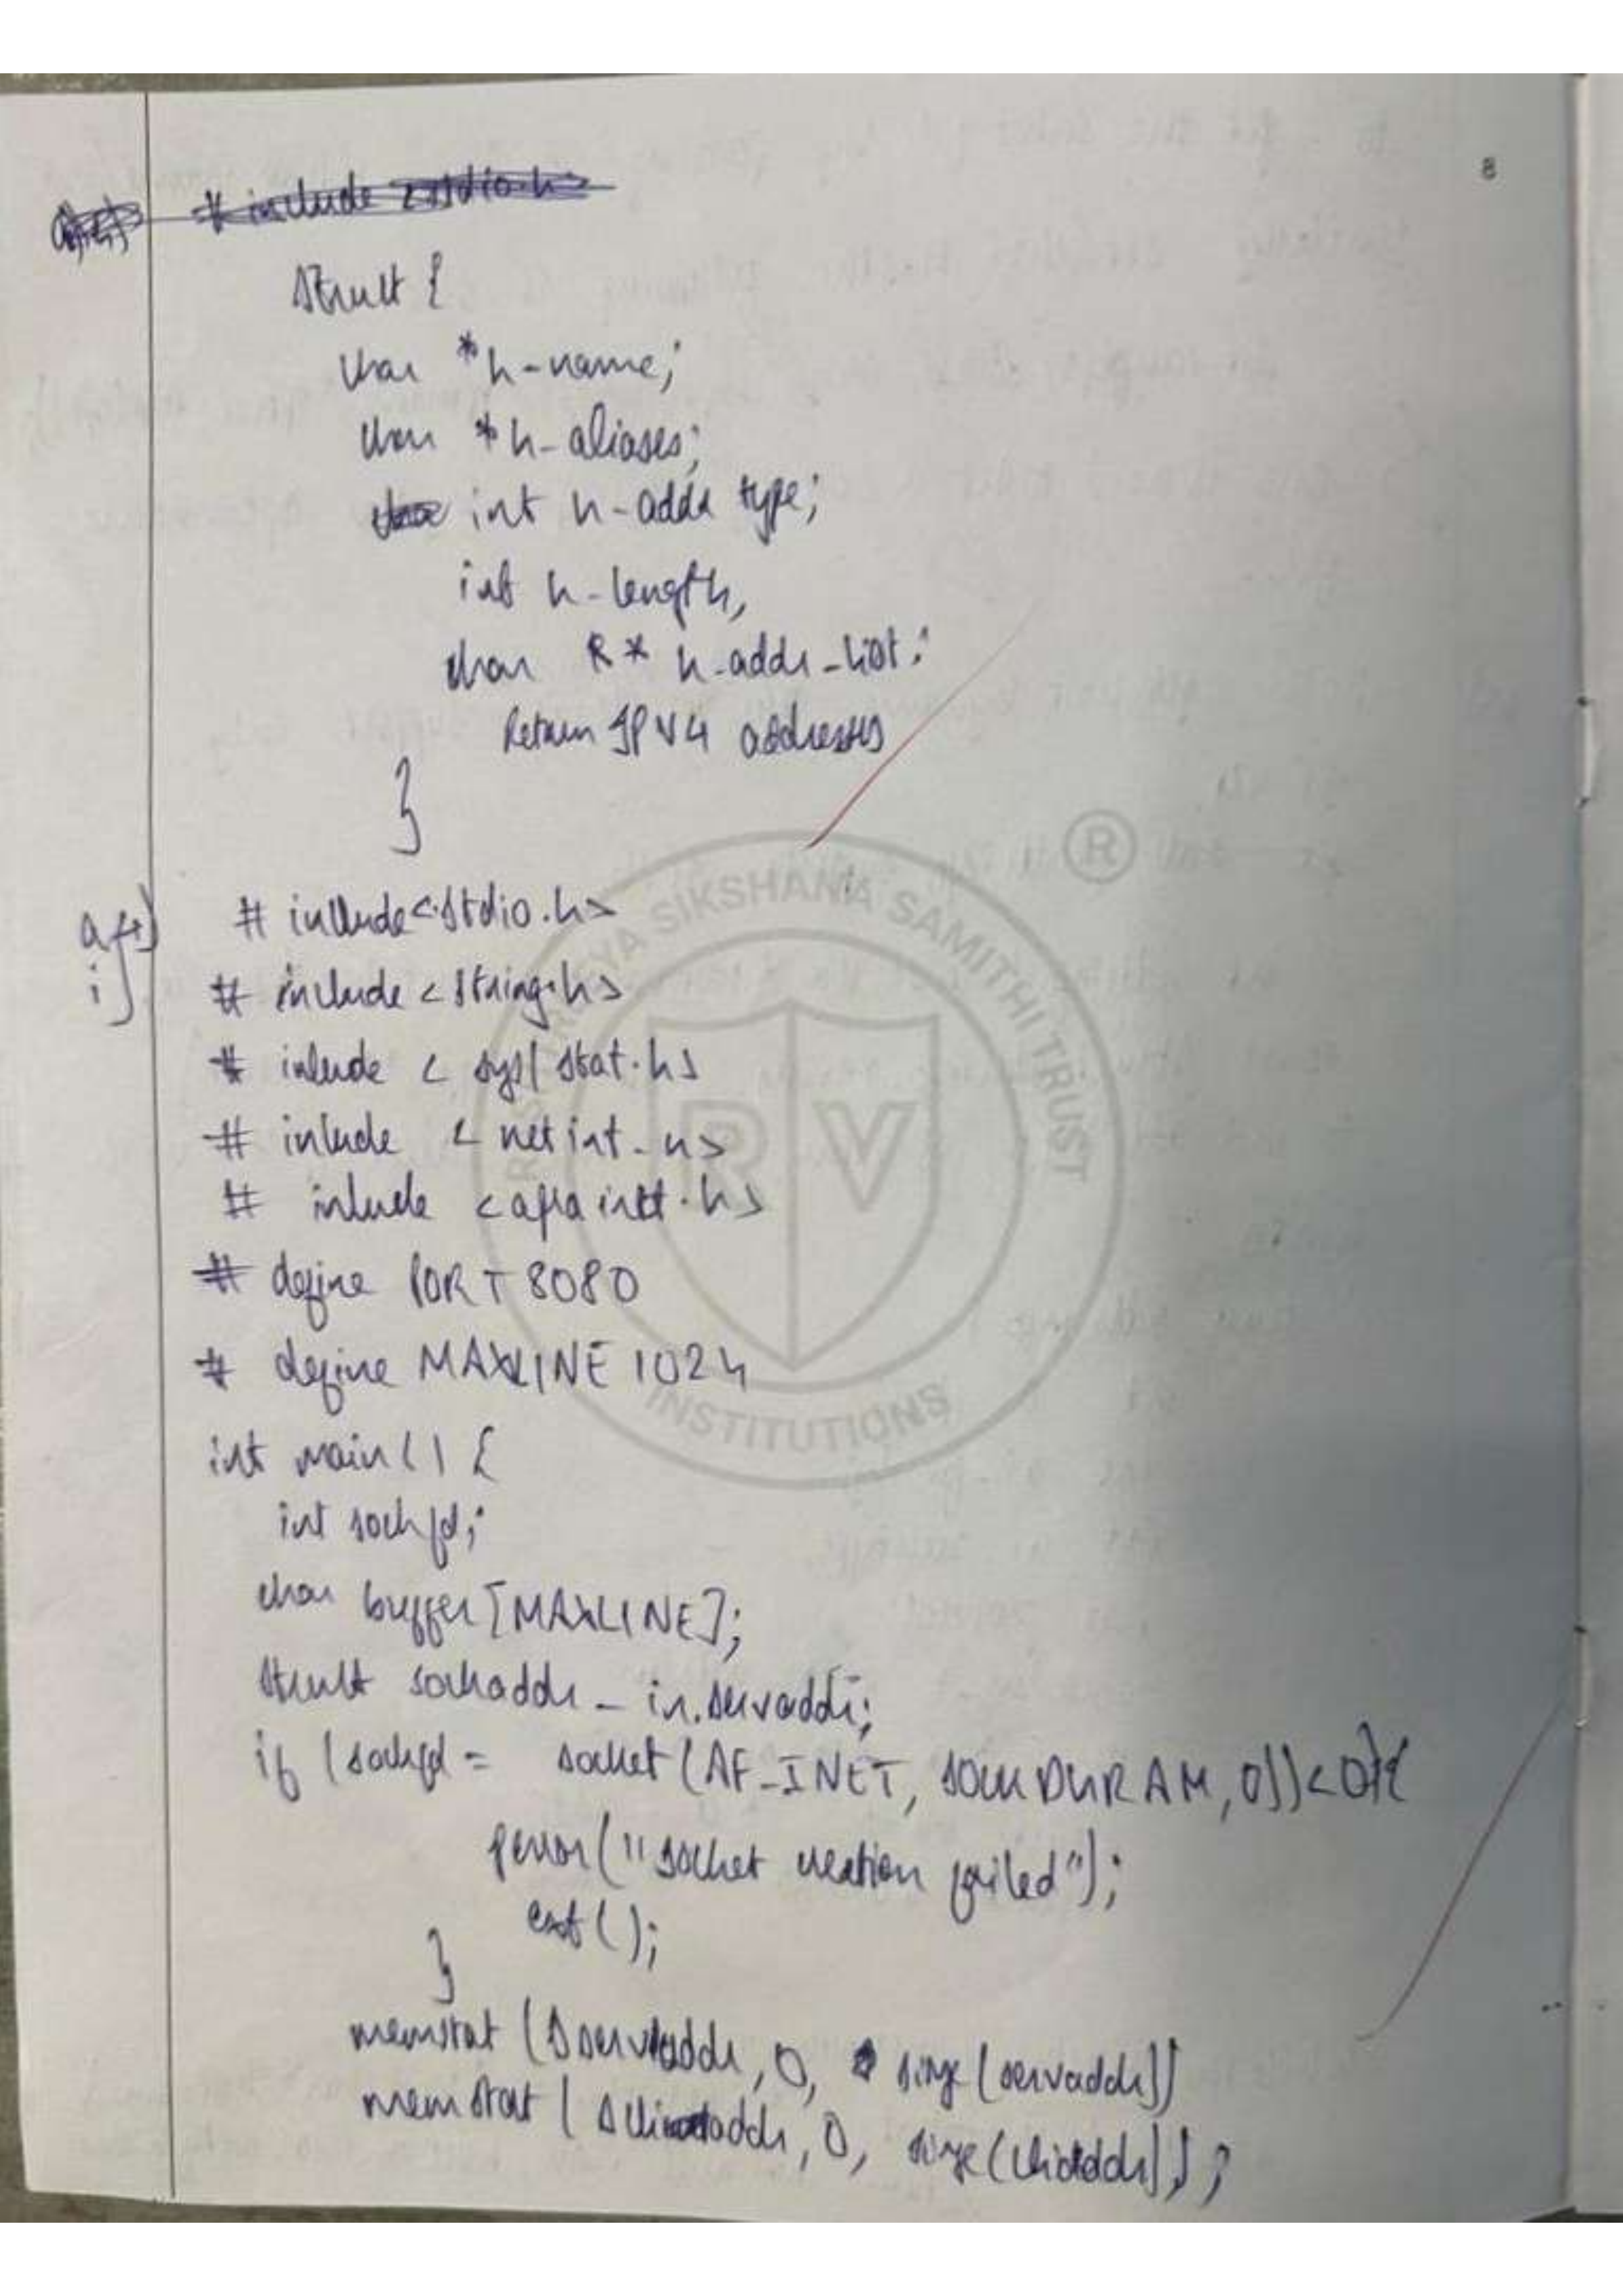 8
# include <stdio.h>
struct {
char *h-name;
char *h-aliases;
int h-addr type;
int h-length,
char R* h-addr-list;
Return IPV4 addresses
}
# include<stdio.h>
i)
# include <string.h>
# inlude < sys/ stat.h>
# inlude < net int.h>
# inlude <
# define PORT 8080
# define MAXLINE 1024
int main() {
int sockfd;
char buffer [MAXLINE];
struct sockaddr - in.servaddr;
if (sockfd = socket (AF-INET, 0))<0){
perror("socket creation failed");
();
}
memstat ( servaddr, 0, (servaddr))
memstat ( , 0, );
®
RASHTREEYA SIKSHANA SAMITHI TRUST
RV
INSTITUTIONS